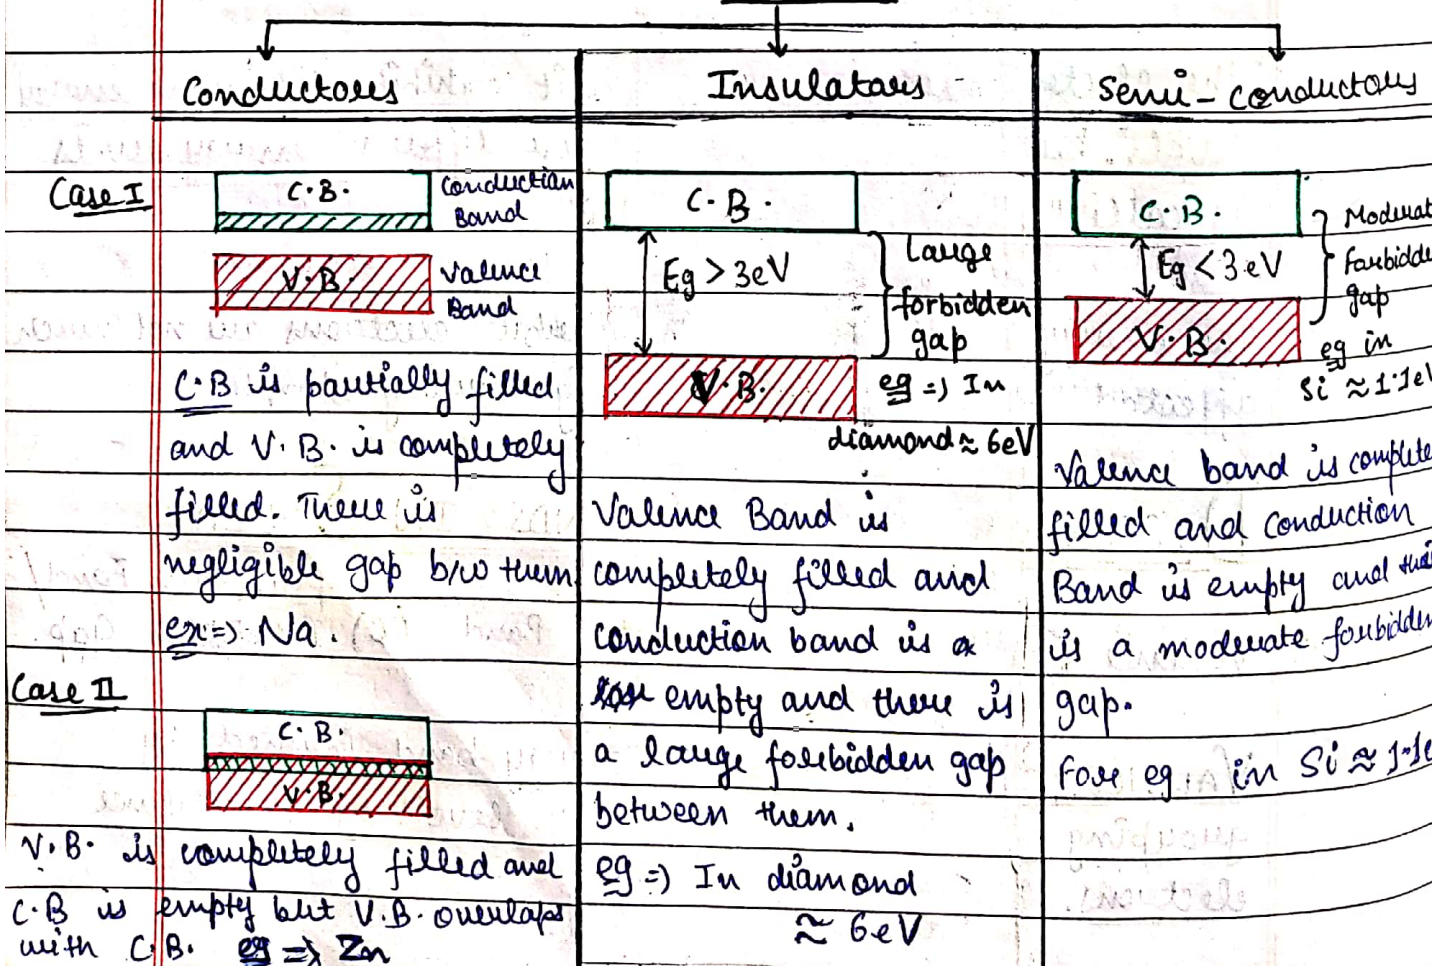 Conductors
Insulators
Semi-conductors
Case I
C.B.
Conduction
Band
V.B.
Valence
Band
C.B is partially filled
and V.B. is completely
filled. There is
negligible gap b/w them
ex => Na.
Case II
C.B.
V.B.
V.B. is completely filled and
C.B is empty but V.B. overlaps
with C.B. eg => Zn
C.B.
Eg > 3eV
Large
forbidden
gap
V.B.
eg => In
diamond ≈ 6eV
Valence Band is
completely filled and
conduction band is
empty and there is
a large forbidden gap
between them.
eg => In diamond
≈ 6eV
C.B.
Eg < 3eV
Moderat
Forbidde
gap
V.B.
eg in
Si ≈ 1.1eV
Valence band is complete
filled and conduction
Band is empty and
is a moderate forbidden
gap.
For eg. in Si ≈ 1.1e